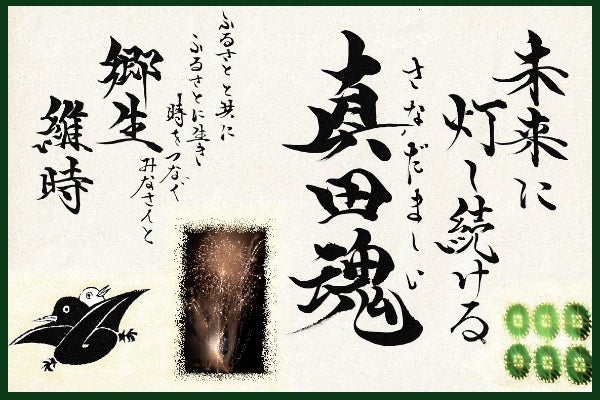 未来に
灯し続ける
さなだましい
真田魂
ふるさとと共に
ふるさとに生き
時をつなぐ
みなさんと
郷生
維時